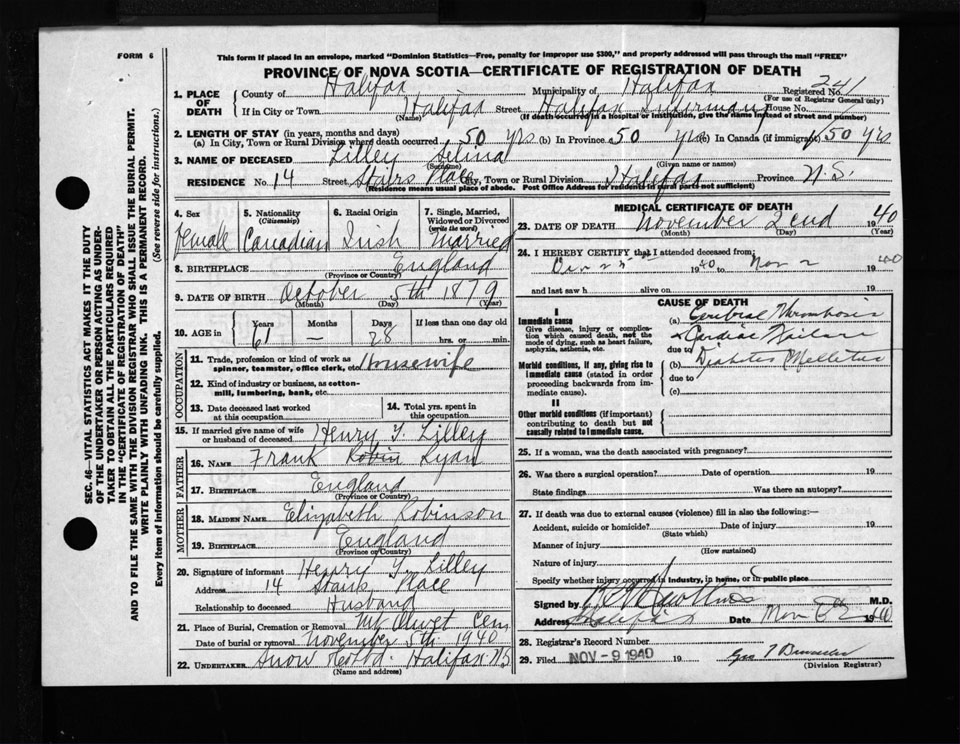 FORM 6
This form if placed in an envelope, marked "Dominion Statistics—Free, penalty for improper use $300," and properly addressed will pass through the mail "FREE"
PROVINCE OF NOVA SCOTIA—CERTIFICATE OF REGISTRATION OF DEATH
1. PLACE OF DEATH County of Halifax Municipality of Halifax Registered No. 241
(For use of Registrar General only)
If in City or Town Halifax Street Halifax Infirmary House No.
(Name) (If death occurred in a hospital or institution, give the name instead of street and number)
2. LENGTH OF STAY (in years, months and days)
(a) In City, Town or Rural Division where death occurred 50 yrs (b) In Province 50 yrs (c) In Canada (if immigrant) 50 yrs
3. NAME OF DECEASED Lilley Selina
(Surname) (Given name or names)
RESIDENCE No. 14 Street Stairs Place City, Town or Rural Division Halifax Province N.S.
(Residence means usual place of abode. Post Office Address for residents in rural parts not sufficient)
4. Sex Female
5. Nationality (Citizenship) Canadian
6. Racial Origin Irish
7. Single, Married, Widowed or Divorced (write the word) Married
8. BIRTHPLACE England
(Province or Country)
9. DATE OF BIRTH October 5th 1879
(Month) (Day) (Year)
10. AGE in Years 61 Months — Days 28 If less than one day old hrs. or min.
OCCUPATION
11. Trade, profession or kind of work as spinner, teamster, office clerk, etc. Housewife
12. Kind of industry or business, as cotton-mill, lumbering, bank, etc.
13. Date deceased last worked at this occupation
14. Total yrs. spent in this occupation
15. If married give name of wife or husband of deceased Henry T. Lilley
FATHER
16. NAME Frank Robin Ryan
17. BIRTHPLACE England
(Province or Country)
MOTHER
18. MAIDEN NAME Elizabeth Robinson
19. BIRTHPLACE England
(Province or Country)
20. Signature of informant Henry T. Lilley
Address 14 Stairs Place
Relationship to deceased Husband
21. Place of Burial, Cremation or Removal Mt Olivet Cem
Date of burial or removal November 5th 1940
22. UNDERTAKER Snow Halifax NS
(Name and address)
MEDICAL CERTIFICATE OF DEATH
23. DATE OF DEATH November 2cnd 1940
(Month) (Day) (Year)
24. I HEREBY CERTIFY that I attended deceased from
1940 to Nov 2 1940
and last saw h alive on 19
CAUSE OF DEATH
I
Immediate cause
Give disease, injury or complication which caused death, not the mode of dying, such as heart failure, asphyxia, asthenia, etc.
(a) Cerebral Thrombosis
Cardiac Failure
due to
Morbid conditions, if any, giving rise to immediate cause (stated in order proceeding backwards from immediate cause).
(b) Diabetes Mellitus
due to
(c)
II
Other morbid conditions (if important) contributing to death but not causally related to immediate cause.
25. If a woman, was the death associated with pregnancy?
26. Was there a surgical operation? Date of operation 19
State findings Was there an autopsy?
27. If death was due to external causes (violence) fill in also the following:—
Accident, suicide or homicide? Date of injury 19
(State which)
Manner of injury
(How sustained)
Nature of injury
Specify whether injury occurred in industry, in home, or in public place
Signed by M.D.
Address Halifax Date Nov 1940
28. Registrar's Record Number
29. Filed NOV - 9 1940 19
(Division Registrar)
SEC. 46—VITAL STATISTICS ACT MAKES IT THE DUTY
OF THE UNDERTAKER OR PERSON ACTING AS UNDER-
TAKER TO OBTAIN ALL THE PARTICULARS REQUIRED
IN THE "CERTIFICATE OF REGISTRATION OF DEATH"
AND TO FILE THE SAME WITH THE DIVISION REGISTRAR WHO SHALL ISSUE THE BURIAL PERMIT.
WRITE PLAINLY WITH UNFADING INK. THIS IS A PERMANENT RECORD.
Every item of information should be carefully supplied. (See reverse side for instructions.)